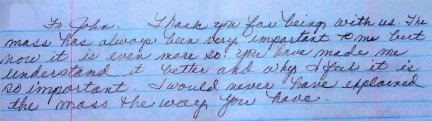 Fr John. Thank you for being with us. The
mass has always been very important to me but
now it is even more so. You have made me
understand it better and why I feel it is
so important. I would never have explained
the mass the way you have.